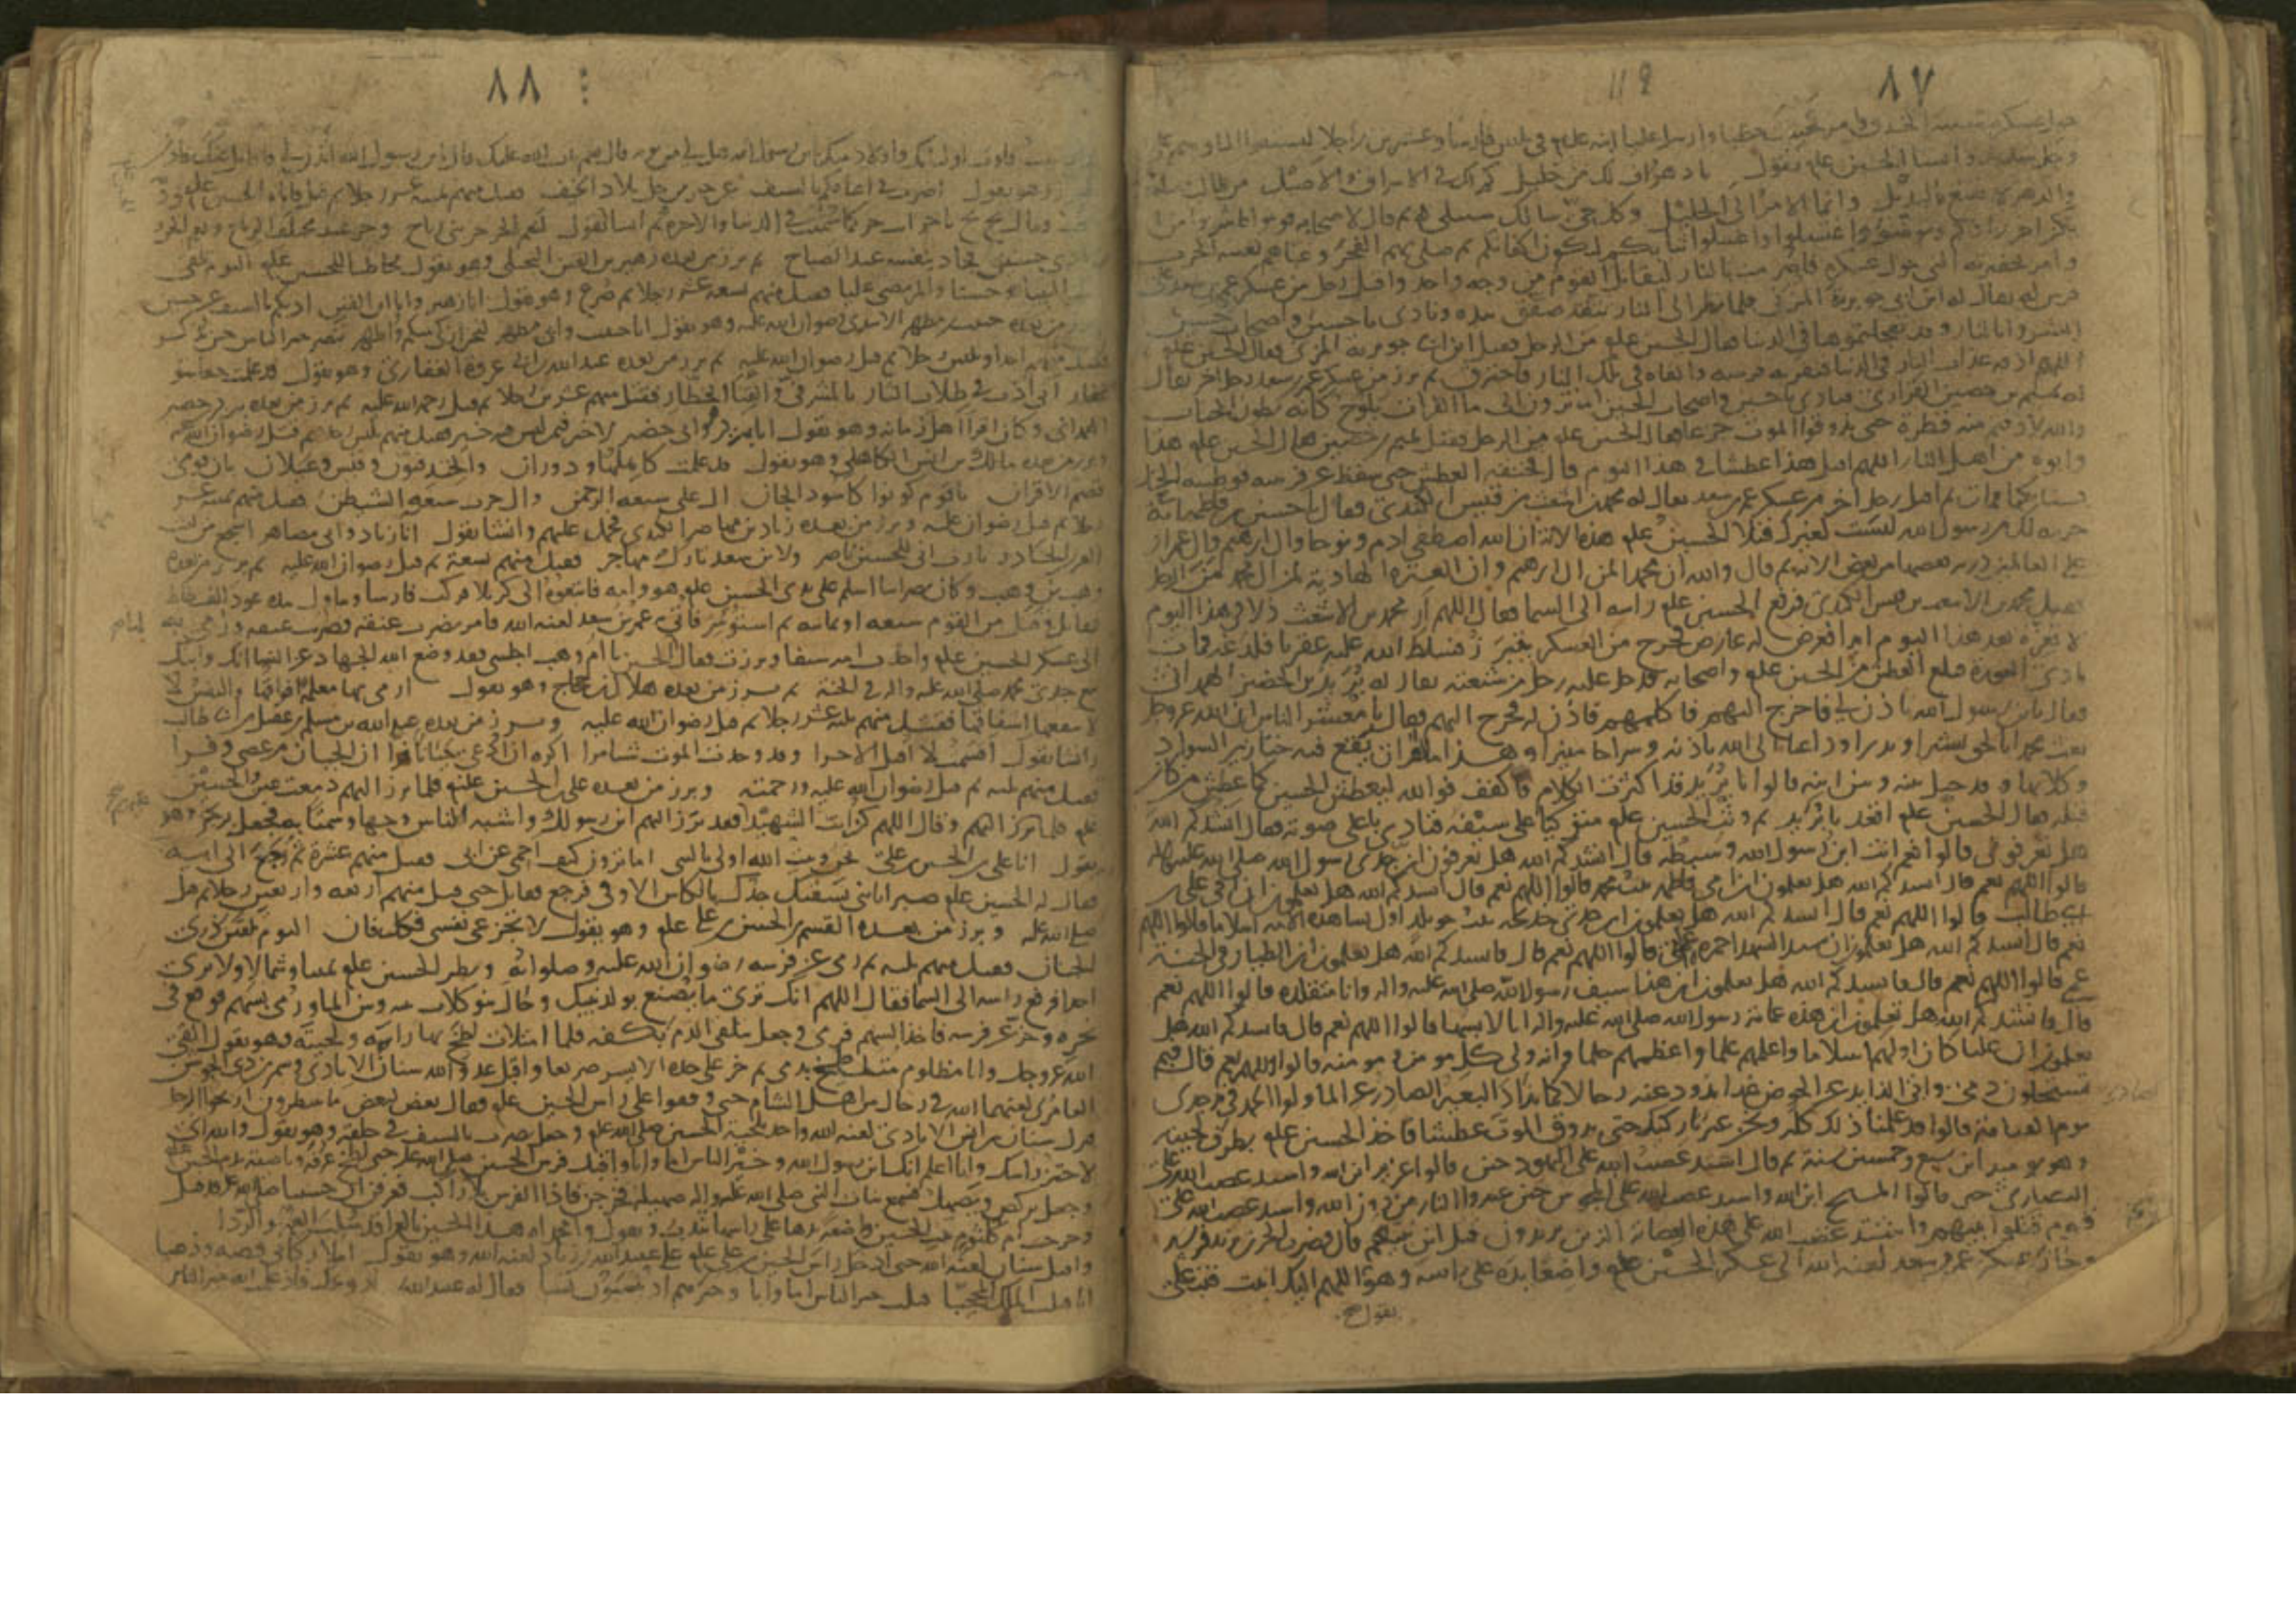 ٨٧
حول عسكره شبه الخندق وامر فحشيت حطبا وارسل عليا ابنه علم في ثلثين فارسا وعشرين راجلا ليستقوا الماء وهم على
وجل شديد وانشا الحسين علم يقول يا دهر اف لك من خليل كم لك في الاشراق والاصيل من طالب وصاحب قتيل
والدهر لا يقنع بالبديل وانما الامر الى الجليل وكل حي سالك سبيلي ثم قال لاصحابه قوموا فاشربوا من الماء
يكن اخر زادكم وتوضوا واغتسلوا واغسلوا ثيابكم لتكون اكفانكم ثم صلى بهم الفجر وعباهم تعبية الحرب
وامر بحفيرته التي حول عسكره فاضرمت بالنار ليقاتل القوم من وجه واحد واقبل رجل من عسكر عمر بن سعد على
فرس له يقال له ابن ابي جويرية المزني فلما نظر الى النار تتقد صفق بيده ونادى يا حسين واصحاب حسين
ابشروا بالنار وقد تعجلتموها في الدنيا فقال الحسين علم من الرجل فقيل ابن ابي جويرية المزني فقال الحسين علم
اللهم اذقه عذاب النار في الدنيا فنفر به فرسه والقاه في تلك النار فاحترق ثم برز من عسكر عمر بن سعد رجل اخر يقال
له تميم بن حصين الفزاري فنادى يا حسين ويا اصحاب الحسين اما ترون الى ما الفرات يلوح كانه بطون الحيات
والله لا ذقتم منه قطرة حتى تذوقوا الموت جرعا فقال الحسين علم من الرجل فقيل تميم بن حصين فقال الحسين علم هذا
وابوه من اهل النار اللهم اقتل هذا عطشا في هذا اليوم قال فخنقه العطش حتى سقط عن فرسه فوطئته الخيل
بسنابكها فمات ثم اقبل رجل اخر من عسكر عمر بن سعد يقال له محمد بن اشعث بن قيس الكندي فقال يا حسين بن فاطمة اية
حرمة لك من رسول الله ليست لغيرك فتلا الحسين علم هذه الاية ان الله اصطفى ادم ونوحا وال ابرهيم وال عمران
على العالمين ذرية بعضها من بعض الاية ثم قال والله ان محمدا لمن ال ابرهيم وان العترة الهادية لمن ال محمد من الرجل
فقيل محمد بن الاشعث بن قيس الكندي فرفع الحسين علم راسه الى السما فقال اللهم ار محمد بن الاشعث ذلا في هذا اليوم
لا تعزه بعد هذا اليوم ابدا فعرض له عارض فخرج من العسكر يتبرز فسلط الله عليه عقربا فلدغته فمات
بادي العورة فبلغ العطش من الحسين علم واصحابه فدخل عليه رجل من شيعته يقال له بُرَير بن الخضير الهمداني
فقال يا بن رسول الله تاذن لي فاخرج اليهم فاكلمهم فاذن له فخرج اليهم فقال يا معشر الناس ان الله عز وجل
بعث محمدا بالحق بشيرا ونذيرا وداعيا الى الله باذنه وسراجا منيرا وهذا ما الفرات تقع فيه خنازير السواد
وكلابها وقد حيل بينه وبين ابنه قالوا يا بُرَير قد اكثرت الكلام فاكفف فوالله ليعطش الحسين كما عطش من كان
قبله فقال الحسين علم اقعد يا بُرَير ثم وثب الحسين علم متوكيا على سيفه فنادى باعلى صوته فقال انشدكم الله
هل تعرفوني قالوا نعم انت ابن رسول الله وسبطه قال انشدكم الله هل تعرفون ان جدي رسول الله صلى الله عليه واله
قالوا اللهم نعم قال انشدكم الله هل تعلمون ان امي فاطمة بنت محمد قالوا اللهم نعم قال انشدكم الله هل تعلمون ان ابي علي بن
ابي طالب قالوا اللهم نعم قال انشدكم الله هل تعلمون ان جدتي خديجة بنت خويلد اول نسا هذه الامة اسلاما قالوا اللهم
نعم قال انشدكم الله هل تعلمون ان سيد الشهدا حمزة عم ابي قالوا اللهم نعم قال فانشدكم الله هل تعلمون ان الطيار في الجنة
عمي قالوا اللهم نعم قال فانشدكم الله هل تعلمون ان هذا سيف رسول الله صلى الله عليه واله وانا متقلده قالوا اللهم نعم
قال فانشدكم الله هل تعلمون ان هذه عمامة رسول الله صلى الله عليه واله انا لابسها قالوا اللهم نعم قال فانشدكم الله هل
تعلمون ان عليا كان اولهم اسلاما واعلمهم علما واعظمهم حلما وانه ولي كل مومن ومومنة قالوا اللهم نعم قال فبم
تستحلون دمي وابي الذايد عن الحوض غدا يذود عنه رجالا كما يذاد البعير الصادر عن الما ولوا الحمد في يد جدي
يوم القيامة قالوا قد علمنا ذلك كله ونحن غير تاركيك حتى تذوق الموت عطشا فاخذ الحسين علم بطرف لحيته
وهو يوميذ ابن سبع وخمسين سنة ثم قال اشتد غضب الله على اليهود حين قالوا عزير ابن الله واشتد غضب الله على
النصارى حين قالوا المسيح ابن الله واشتد غضب الله على المجوس حين عبدوا النار من دون الله واشتد غضب الله على
قوم قتلوا نبيهم واشتد غضب الله على هذه العصابة الذين يريدون قتل ابن نبيهم قال فضرب الحر بن يزيد فرسه
وجاز عسكر عمر بن سعد لعنه الله الى عسكر الحسين علم واضعا يده على راسه وهو اللهم اليك انيت فتب علي
يقول صح
٨٨
فقد ارعبت قلوب اوليائك واولاد نبيك يا بن رسول الله هل لي من توبة قال نعم تاب الله عليك قال يا بن رسول الله ائذن لي فاقاتل عنك فاذن
له فبرز وهو يقول اضرب في اعناقكم بالسيف عن خير من حل بلاد الخيف فقتل منهم ثمنية عشر رجلا ثم قتل فاتاه الحسين علم ودمه
يشخب وقال بخ بخ يا حر انت حر كما سميت في الدنيا والاخرة ثم انشا يقول لنعم الحر حر بني رياح وحر عند مختلف الرماح ونعم الحر
اذ نادى حسينا فجاد بنفسه عند الصباح ثم برز من بعده زهير بن القين البجلي وهو يقول مخاطبا للحسين علم اليوم نلقى
جدك النبيا وحسنا والمرتضى عليا فقتل منهم تسعة عشر رجلا ثم صرع وهو يقول انا زهير وانا ابن القين اذبكم بالسيف عن حسين
ثم برز من بعده حبيب بن مظهر الاسدي رضوان الله عليه وهو يقول انا حبيب وابي مظهر لنحن ازكى منكم واطهر ننصر خير الناس حين يذكر
فقتل منهم احدا وثلثين رجلا ثم قتل رضوان الله عليه ثم برز من بعده عبد الله بن ابي عروة الغفاري وهو يقول قد علمت حقا بنو
غفار اني اذب في طلاب الثار بالمشرفي والقنا الخطار فقتل منهم عشرين رجلا ثم قتل رحمه الله عليه ثم برز من بعده برير بن خضير
الهمداني وكان اقرا اهل زمانه وهو يقول انا برير وابي خضير لا خير فيمن ليس فيه خير فقتل منهم ثلثين رجلا ثم قتل رضوان الله عليه
وبرز من بعده مالك بن انس الكاهلي وهو يقول قد علمت كاهلها ودوران والخندفيون وقيس عيلان بان قومي
قصم الاقران يا قوم كونوا كاسود الجان ال علي شيعة الرحمن وال حرب شيعة الشيطان فقتل منهم ثمنية عشر
رجلا ثم قتل رضوان الله عليه وبرز من بعده زياد بن مهاصر الكندي فحمل عليهم وانشا يقول انا زياد وابي مصاهر اشجع من ليث
العرين الخادر يا رب اني للحسين ناصر ولابن سعد تارك مهاجر فقتل منهم تسعة ثم قتل رضوان الله عليه ثم برز من بعده
وهب بن وهب وكان نصرانيا اسلم على يدي الحسين علم هو وامه فاتبعوه الى كربلا فركب فرسا وتناول بيده عود الفسطاط
فقاتل وقتل من القوم سبعة او ثمانية ثم استوسر فاتي عمر بن سعد لعنه الله فامر بضرب عنقه فضرب عنقه ورمي به
الى عسكر الحسين علم واخذت امه سيفا وبرزت فقال الحسين يا ام وهب اجلسي فقد وضع الله الجهاد عن النسا انك وابنك
مع جدي محمد صلى الله عليه واله في الجنة ثم برز من بعده هلال بن حجاج وهو يقول ارمي بها معلمة افواقها والنفس لا
ينفعها اشفاقها فقتل منهم ثلثة عشر رجلا ثم قتل رضوان الله عليه وبرز من بعده عبد الله بن مسلم بن عقيل بن ابي طالب
وانشا يقول اقسمت لا اقتل الا حرا وقد وجدت الموت شيئا مرا اكره ان ادعى جبانا فرا ان الجبان من عصى وفرا
فقتل منهم ثلثة ثم قتل رضوان الله عليه ورحمته وبرز من بعده علي بن الحسين علم فلما برز اليهم دمعت عين الحسين
علم فلما برز اليهم وقال اللهم كن انت الشهيد فقد برز اليهم ابن رسولك واشبه الناس وجها وسمتا به فجعل يرتجز وهو
يقول انا علي بن الحسين بن علي نحن وبيت الله اولى بالنبي اما ترون كيف احمي عن ابي فقتل منهم عشرة ثم رجع الى ابيه
فقال له الحسين علم صبرا يا بني يسقيك جدك بالكاس الاوفى فرجع فقاتل حتى قتل منهم اربعة واربعين رجلا ثم قتل
صلى الله عليه وبرز من بعده القسم بن الحسن بن علي علم وهو يقول لا تجزعي نفسي فكل فان اليوم تلقين ذرى
الجنان فقتل منهم ثلثة ثم رمي عن فرسه رضوان الله عليه وصلواته ونظر الحسين علم يمينا وشمالا ولا يرى
احدا فرفع راسه الى السما فقال اللهم انك ترى ما يصنع بولد نبيك وحال بنو كلاب بينه وبين الما ورمي بسهم فوقع في
نحره وخر عن فرسه فاخذ السهم فرمى وجعل يتلقى الدم بكفه فلما امتلات لطخ بها راسه ولحيته وهو يقول القى
الله عز وجل وانا مظلوم متلطخ بدمي ثم خر على خده الايسر صريعا واقبل عدو الله سنان الايادي وشمر بن ذي الجوشن
العامري لعنهما الله في رجال من اهل الشام حتى وقفوا على راس الحسين علم فقال بعض لبعض ما تنظرون اريحوا الرجل
فنزل سنان بن انس الايادي لعنه الله واخذ بلحية الحسين صلى الله عليه وجعل يضرب بالسيف في حلقه وهو يقول والله اني
لاحتز راسك وانا اعلم انك ابن رسول الله وخير الناس اما وابا واقبل فرس الحسين صلى الله عليه حتى لطخ عرفه وناصيته بدم الحسين
وجعل يركض ويصهل فسمع بنات النبي صلى الله عليه واله صهيله فخرجن فاذا الفرس بلا راكب فعرفن ان حسينا صلى الله عليه قد قتل
وخرجت ام كلثوم بنت الحسين واضعة يدها على راسها تندب وتقول وامحمداه هذا الحسين بالعرا قد سلب العمامة والردا
واقبل سنان لعنه الله حتى ادخل راس الحسين بن علي علم على عبيد الله بن زياد لعنه الله وهو يقول املا ركابي فضة وذهبا
انا قتلت الملك المحجبا قتلت خير الناس اما وابا وخيرهم اذ ينسبون نسبا فقال له عبيد الله